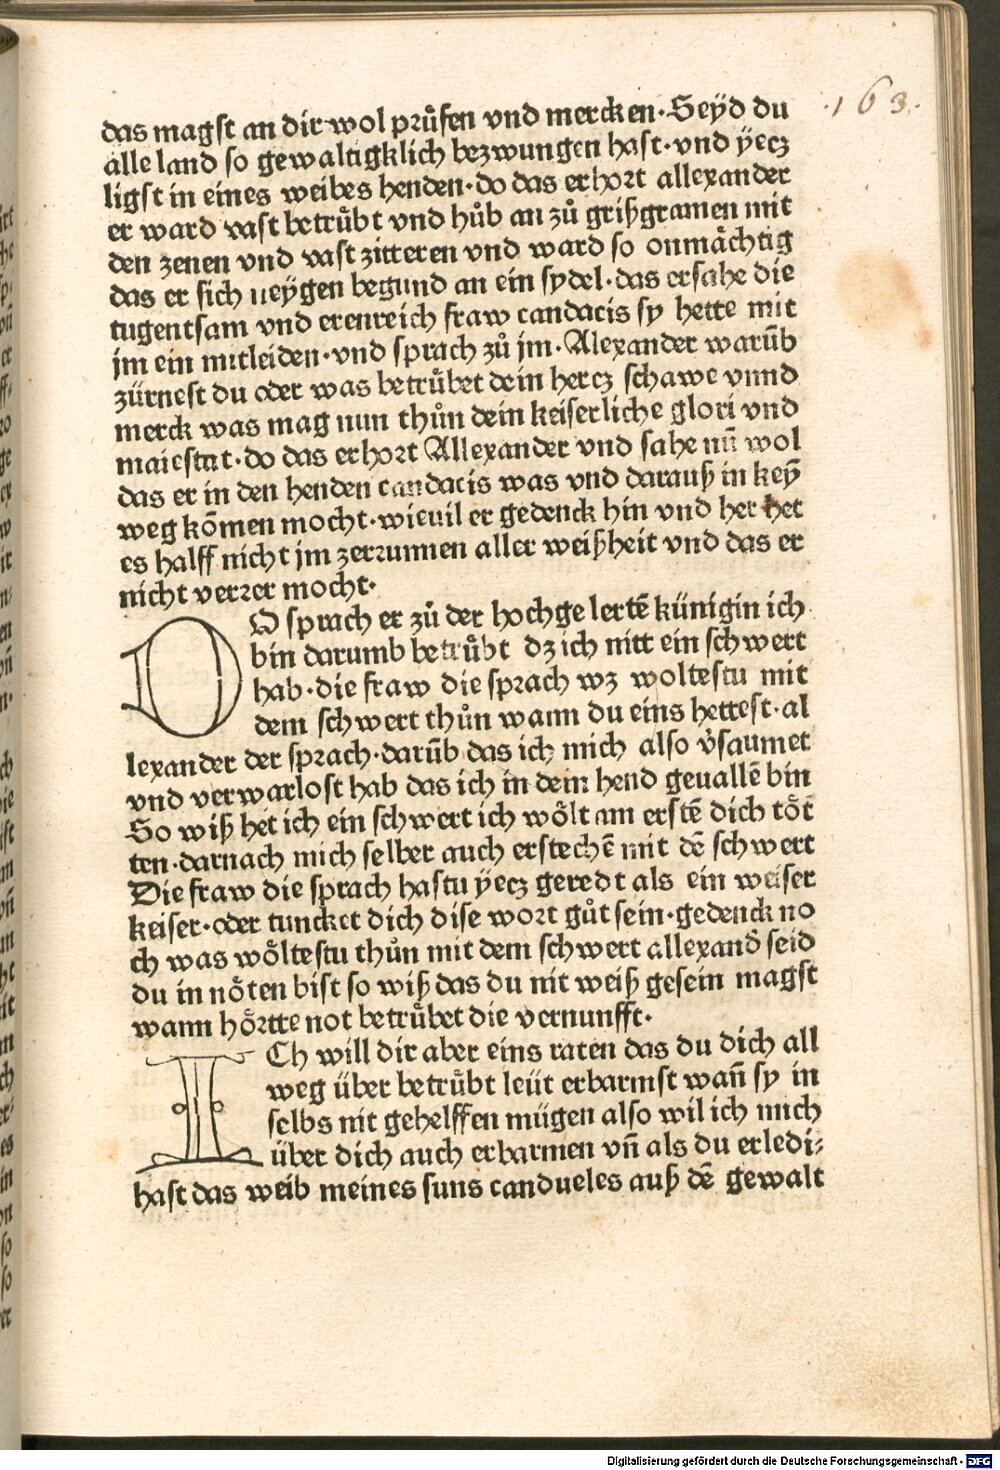 ·163·
das magst an dir wol průfen vnd mercken·Seÿd du
alle land so gewaltigklich bezwungen hast·vnd ÿecz
ligst in eines weibes henden·do das erhort allexander
er ward vast betrůbt vnd hůb an zů grißgramen mit
den zenen vnd vast zitteren vnd ward so onmåchtig
das er sich neÿgen begund an ein sydel·das ersahe die
tugentsam vnd erenreich fraw candacis sy hette mit
jm ein mitleiden·vnd sprach zů jm·Alexander warūb
zürnest du oder was betrůbet dein hercz schawe vnnd
merck was mag nun thůn dein keiserliche glori vnd
maiestat·do das erhort Allexander vnd sahe nū wol
das er in den henden candacis was vnd darauß in keÿ̄
weg kōmen mocht·wieuil er gedenck hin vnd her het
es halff nicht jm zerrunnen aller weißheit vnd das er
nicht verrer mocht·
DO sprach er zů der hochgelertē künigin ich
bin darumb betrůbt dz ich nitt ein schwert
hab·die fraw die sprach wz woltestu mit
dem schwert thůn wann du eins hettest·al
lexander der sprach·darūb das ich mich also v̓saumet
vnd verwarlost hab das ich in dein hend geuallē bin
So wiß het ich ein schwert ich wŏlt am erstē dich tŏt
ten·darnach mich selber auch erstechē mit dē schwert
Die fraw die sprach hastu ÿecz geredt als ein weiser
keiser·oder tuncket dich dise wort gůt sein·gedenck no
ch was wŏltestu thůn mit dem schwert allexand̓ seid
du in nŏten bist so wiß das du nit weiß gesein magst
wann hŏrtte not betrůbet die vernunfft·
ICh will dir aber eins raten das du dich all
weg über betrůbt leüt erbarmst wan̄ sy in
selbs nit gehelffen mügen also wil ich mich
über dich auch erbarmen vn̄ als du erledi⸗
hast das weib meines suns candueles auß dē gewalt
Digitalisierung gefördert durch die Deutsche Forschungsgemeinschaft - DFG